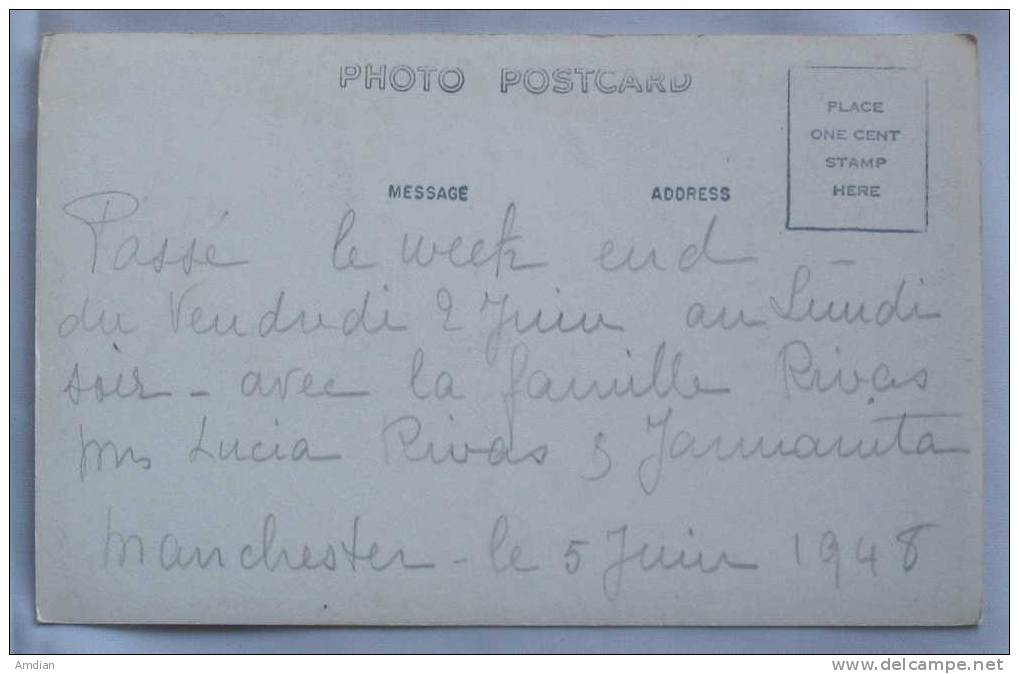 PHOTO POSTCARD
PLACE
ONE CENT
STAMP
HERE
MESSAGE
ADDRESS
Passé le week end -
du Vendredi 2 Juin au Lundi
soir - avec la famille Rivas
Lucia Rivas
Manchester - le 5 Juin 1948
Amdian
www.delcampe.net